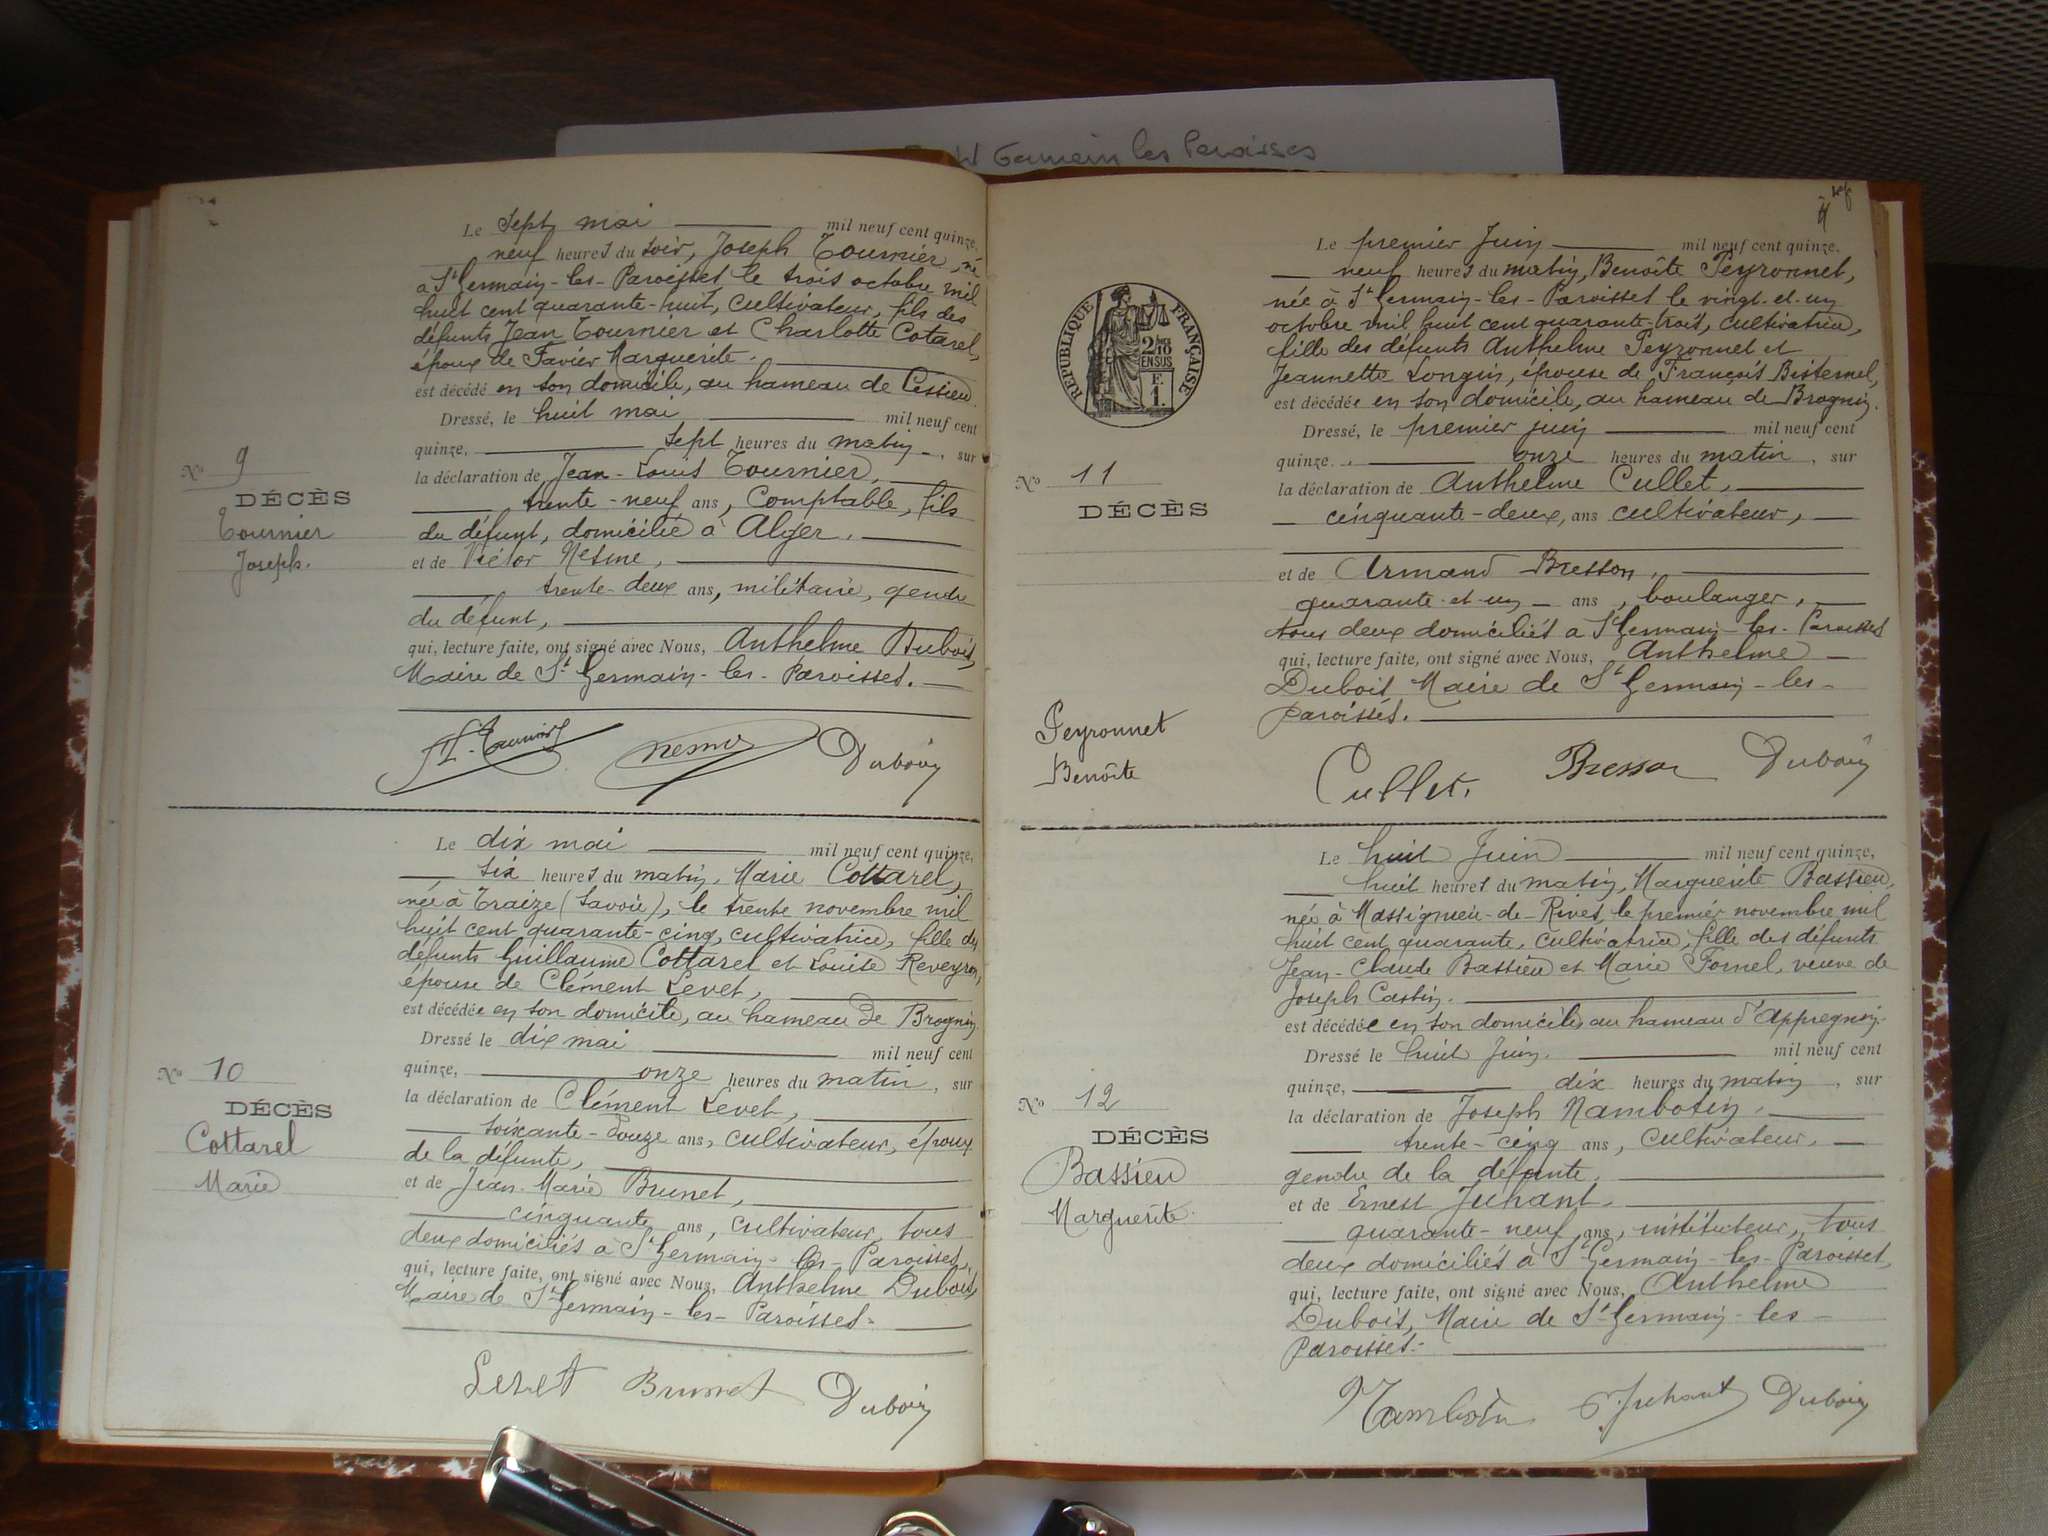 St Germain les Paroisses
Le sept mai mil neuf cent quinze,
neuf heures du soir, Joseph Tournier, né
à St Germain-les-Paroisses, le trois octobre mil
huit cent quarante-huit, cultivateur, fils des
défunts Jean Tournier et Charlotte Cotarel,
époux de Favier Marguerite.
est décédé en son domicile, au hameau de Cessieu.
Dressé, le huit mai mil neuf cent
quinze, sept heures du matin, sur
la déclaration de Jean-Louis Tournier,
trente-neuf ans, comptable, fils
du défunt, domicilié à Alger.
et de Victor Nesme,
trente-deux ans, militaire, gendre
du défunt,
qui, lecture faite, ont signé avec Nous, Anthelme Dubois,
Maire de St Germain-les-Paroisses.
No 9
DÉCÈS
Tournier
Joseph.
Nesme Dubois
Le dix mai mil neuf cent quinze,
six heures du matin, Marie Cottarel,
née à Traize (Savoie), le trente novembre mil
huit cent quarante-cinq, cultivatrice, fille des
défunts Guillaume Cottarel et Louise Reveyron,
épouse de Clément Levet,
est décédée en son domicile, au hameau de Brognin.
Dressé le dix mai mil neuf cent
quinze, onze heures du matin, sur
la déclaration de Clément Levet,
soixante-douze ans, cultivateur, époux
de la défunte,
et de Jean-Marie Brunet,
cinquante ans, cultivateur, tous
deux domiciliés à St Germain-les-Paroisses,
qui, lecture faite, ont signé avec Nous, Anthelme Dubois,
Maire de St Germain-les-Paroisses.
No 10
DÉCÈS
Cottarel
Marie
Levet Brunet Dubois
RÉPUBLIQUE FRANÇAISE
2/10
EN SUS
F.
1.
Le premier Juin mil neuf cent quinze.
neuf heures du matin, Benoîte Peyronnet,
née à St Germain-les-Paroisses le vingt-et-un
octobre mil huit cent quarante-trois, cultivatrice,
fille des défunts Anthelme Peyronnet et
Jeannette Longin, épouse de François Bisternel,
est décédée en son domicile, au hameau de Brognin.
Dressé, le premier juin mil neuf cent
quinze. onze heures du matin, sur
la déclaration de Anthelme Cullet,
cinquante-deux, ans cultivateur,
et de Armand Bresson,
quarante-et-un ans, boulanger,
tous deux domiciliés à St Germain-les-Paroisses
qui, lecture faite, ont signé avec Nous, Anthelme
Dubois, Maire de St Germain-les-
Paroisses.
No 11
DÉCÈS
Peyronnet
Benoîte
Cullet. Bresson Dubois
Le huit Juin mil neuf cent quinze,
huit heures du matin, Marguerite Bassieu,
née à Massignieu-de-Rives, le premier novembre mil
huit cent quarante, cultivatrice, fille des défunts
Jean-Claude Bassieu et Marie Fornel, veuve de
Joseph Castin.
est décédée en son domicile, au hameau d'Appregnin.
Dressé le huit Juin. mil neuf cent
quinze, dix heures du matin, sur
la déclaration de Joseph Nambotin,
trente-cinq ans, cultivateur,
gendre de la défunte,
et de Ernest Juhant,
quarante-neuf ans, instituteur, tous
deux domiciliés à St Germain-les-Paroisses,
qui, lecture faite, ont signé avec Nous, Anthelme
Dubois, Maire de St Germain-les-
Paroisses.
No 12
DÉCÈS
Bassieu
Marguerite.
Nambotin E. Juhant Dubois